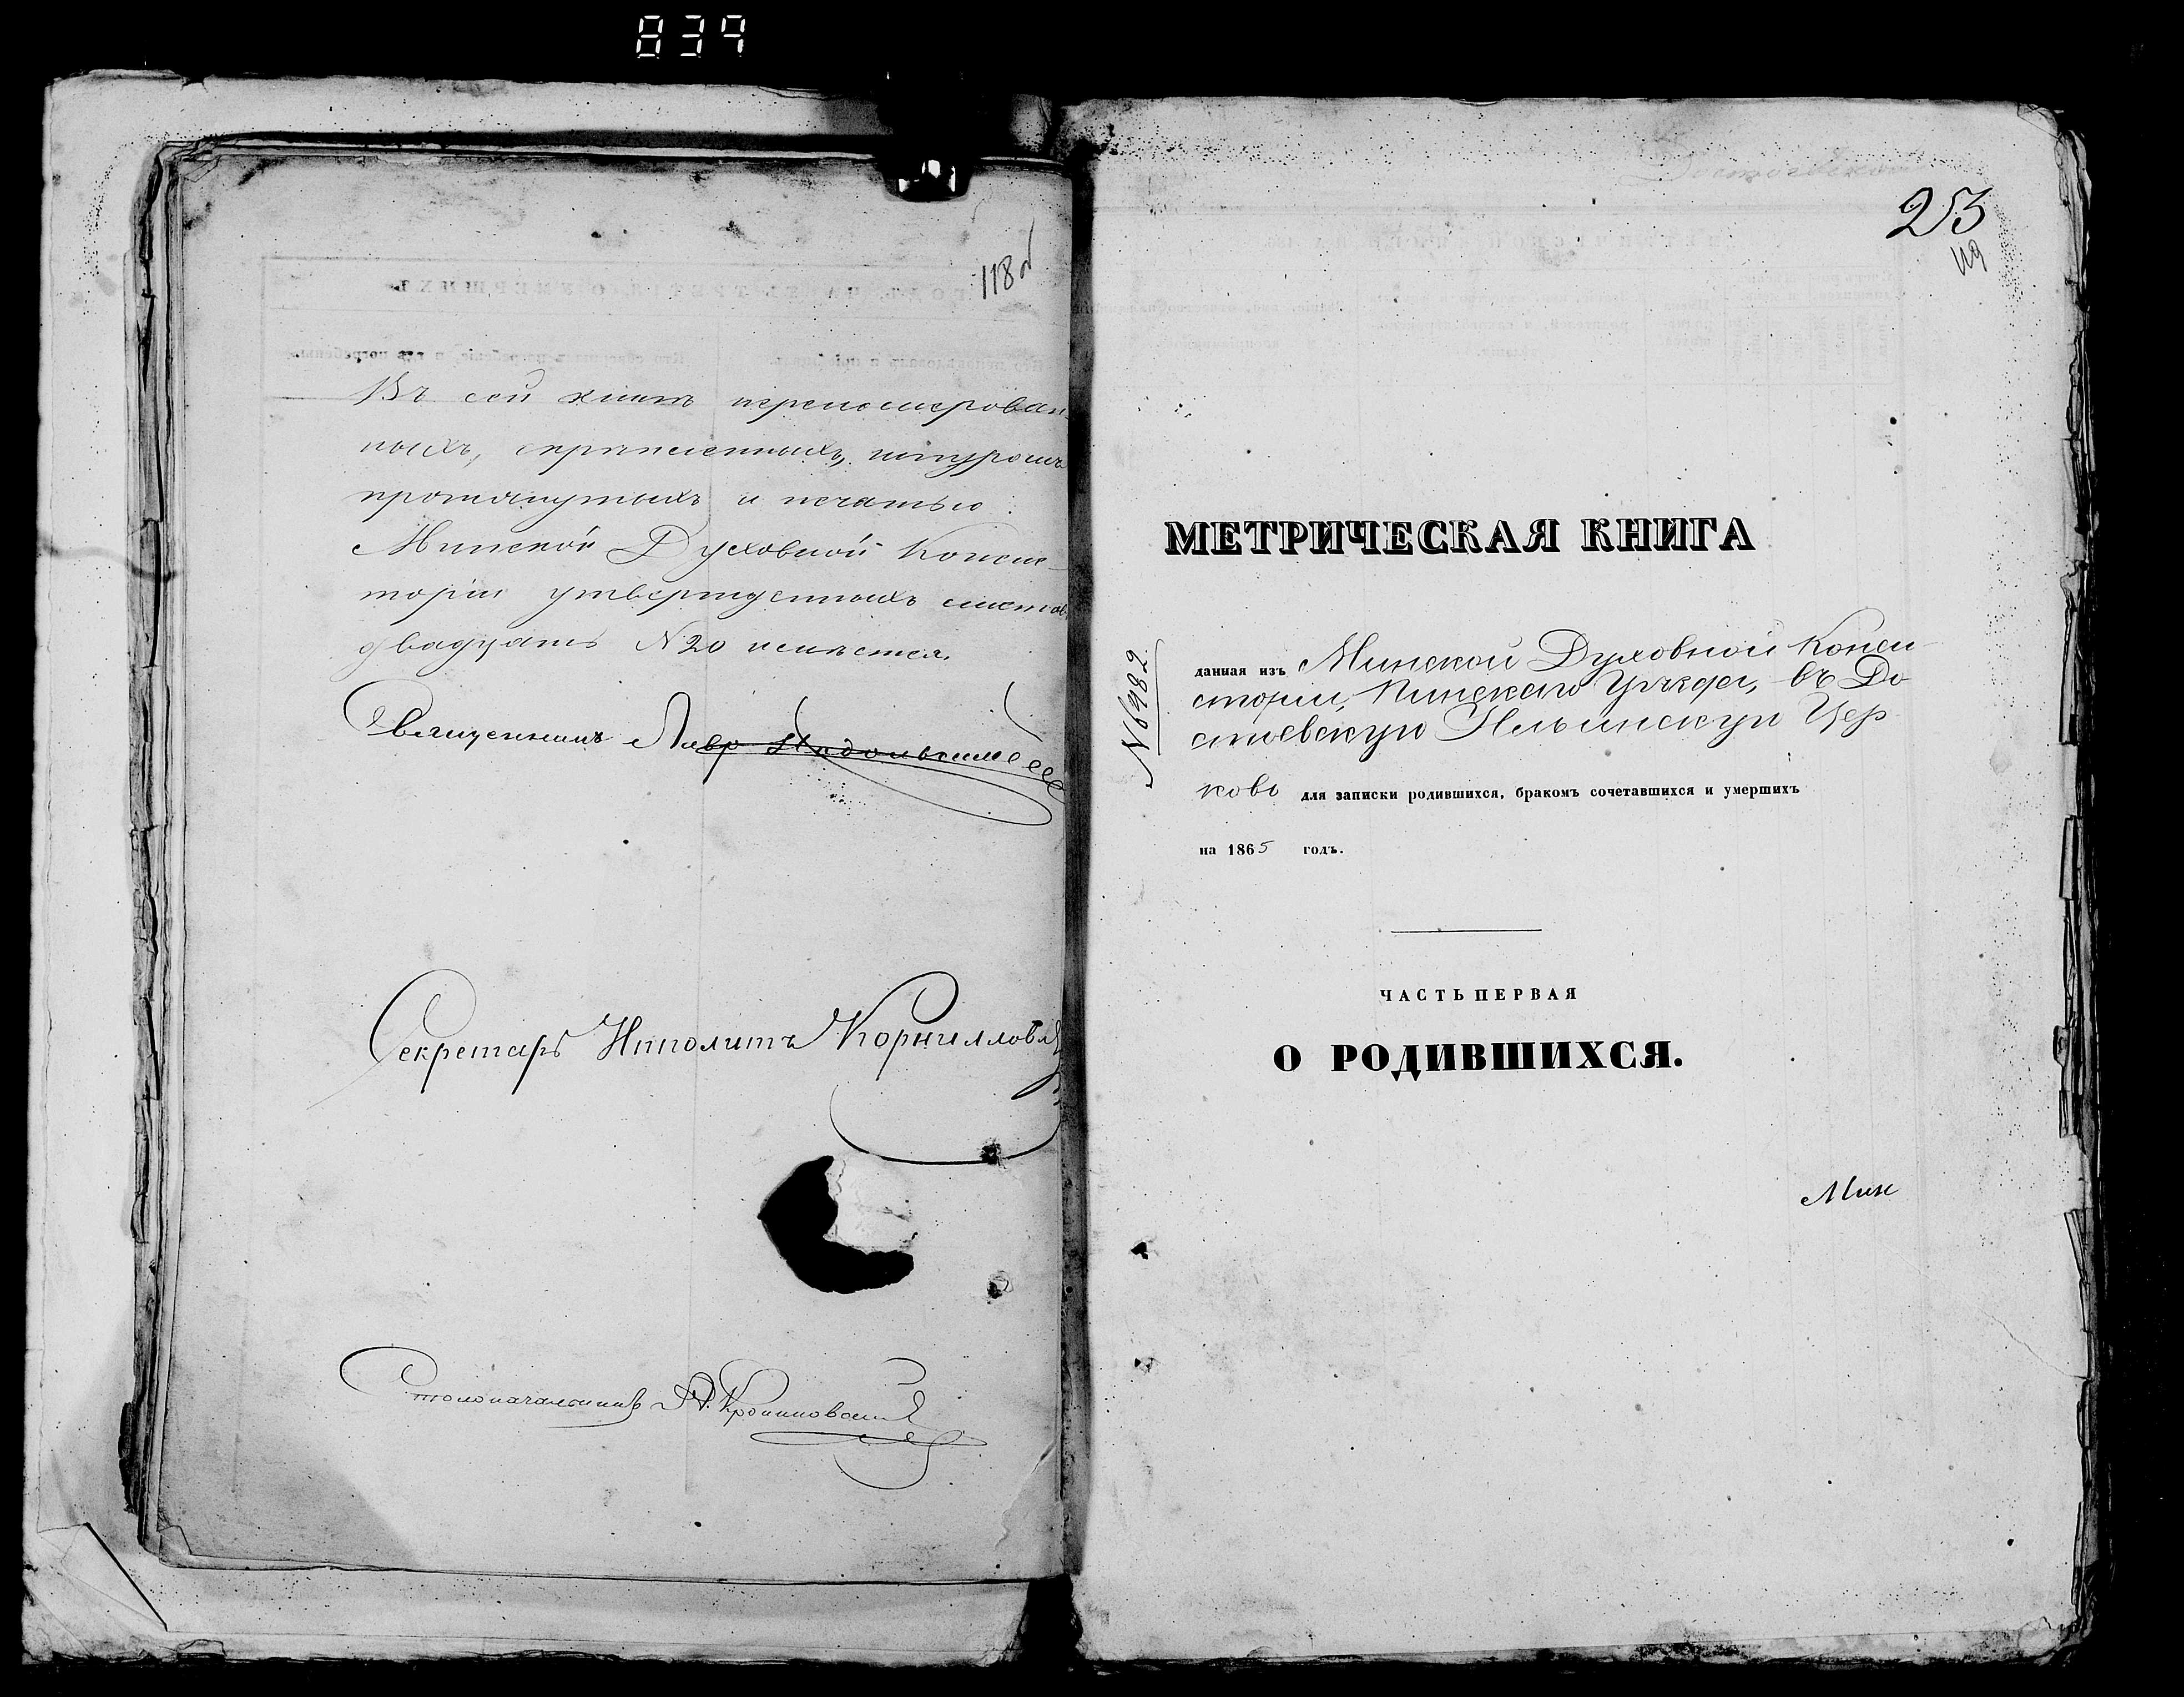 839
118 об
Въ сей книгѣ перенумерован-
ныхъ, скрѣпленныхъ, шнуромъ
протянутыхъ и печатью
Минской Духовной Консис-
торіи утвержденныхъ листовъ
двадцать N 20 имѣется.
Священникъ Лавр
Секретарь Ипполитъ Корнилловъ
Столоначальникъ
253
119
МЕТРИЧЕСКАЯ КНИГА
N 6982
данная изъ Минской Духовной Конси-
сторіи, Пинскаго Уѣзда, въ До
стоевскую Ильинскую Цер
ковь для записки родившихся, бракомъ сочетавшихся и умершихъ
на 1865 годъ.
ЧАСТЬ ПЕРВАЯ
О РОДИВШИХСЯ.
Мин